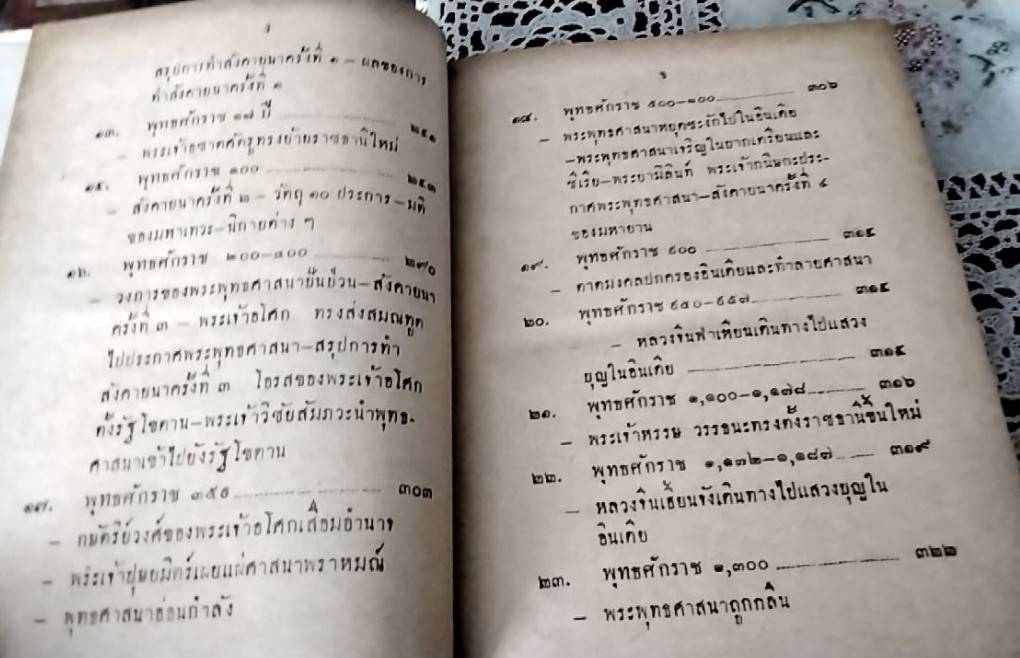 ง
สรุปการทำสังคายนาครั้งที่ ๑ – ผลของการ
ทำสังคายนาครั้งที่ ๑
พุทธศักราช ๑๗ ปี
– พระเจ้าอชาตศัตรูทรงย้ายราชธานีใหม่
๑๕. พุทธศักราช ๑๐๐
– สังคายนาครั้งที่ ๒ – วัตถุ ๑๐ ประการ – มติ
ของมหาเทวะ – นิกายต่าง ๆ
๑๖. พุทธศักราช ๒๐๐ ๒๙๐
– วงการของพระพุทธศาสนาปั่นป่วน–สังคายนา
ครั้งที่ ๓ – พระเจ้าอโศก ทรงส่งสมณทูต
ไปประกาศพระพุทธศาสนา–สรุปการทำ
สังคายนาครั้งที่ ๓ โอรสของพระเจ้าอโศก
ตั้งรัฐโขตาน–พระเจ้าวิชัยสัมภวะนำพุทธ-
ศาสนาเข้าไปยังรัฐโขตาน
๑๗. พุทธศักราช ๓๐๓
– กษัตริย์วงศ์ของพระเจ้าอโศกเสื่อมอำนาจ
– พระเจ้าปุษยมิตร์เผยแผ่ศาสนาพราหมณ์
– พุทธศาสนาอ่อนกำลัง
๑๘. พุทธศักราช ๕๐๐ ๓๐๖
– พระพุทธศาสนาหยุดชะงักไปในอินเดีย
–พระพุทธศาสนาเจริญในบากเตรียนและ
ซีเรีย–พระยามิลินท์ พระเจ้ากนิษกะประ-
กาศพระพุทธศาสนา–สังคายนาครั้งที่ ๔
ของมหายาน
๑๙. พุทธศักราช ๙๐๐ ๓๑๔
– ตาดมงคลปกครองอินเดียและทำลายศาสนา
๒๐. พุทธศักราช ๙๔๐–๙๕๗ ๓๑๕
– หลวงจีนฟาเหียนเดินทางไปแสวง
บุญในอินเดีย ๓๑๕
๒๑. พุทธศักราช ๑,๑๐๐–๑,๑๗๘ ๓๑๖
– พระเจ้าหรรษ วรรธนะทรงตั้งราชธานีขึ้นใหม่
๒๒. พุทธศักราช ๑,๑๗๒–๑,๑๘๗ ๓๑๙
– หลวงจีนเฮี้ยนจังเดินทางไปแสวงบุญใน
อินเดีย
๒๓. พุทธศักราช ๑,๓๐๐ ๓๒๒
– พระพุทธศาสนาถูกกลืน